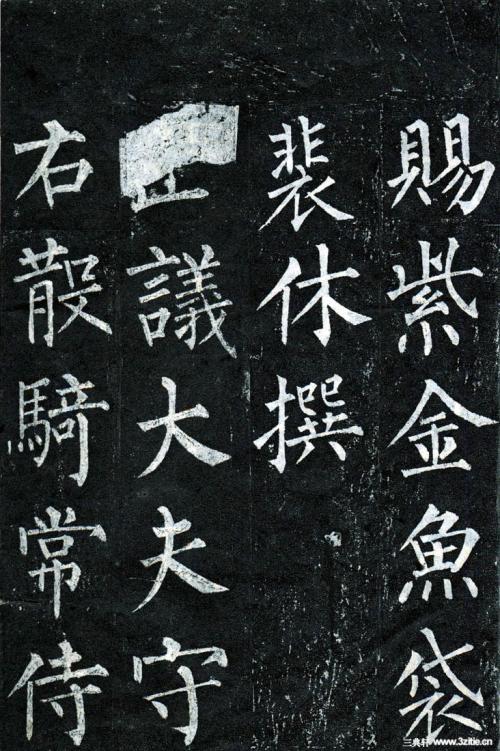 賜紫金魚袋
裴休撰
正議大夫守
右散騎常侍
三典轩 www.3zitie.cn